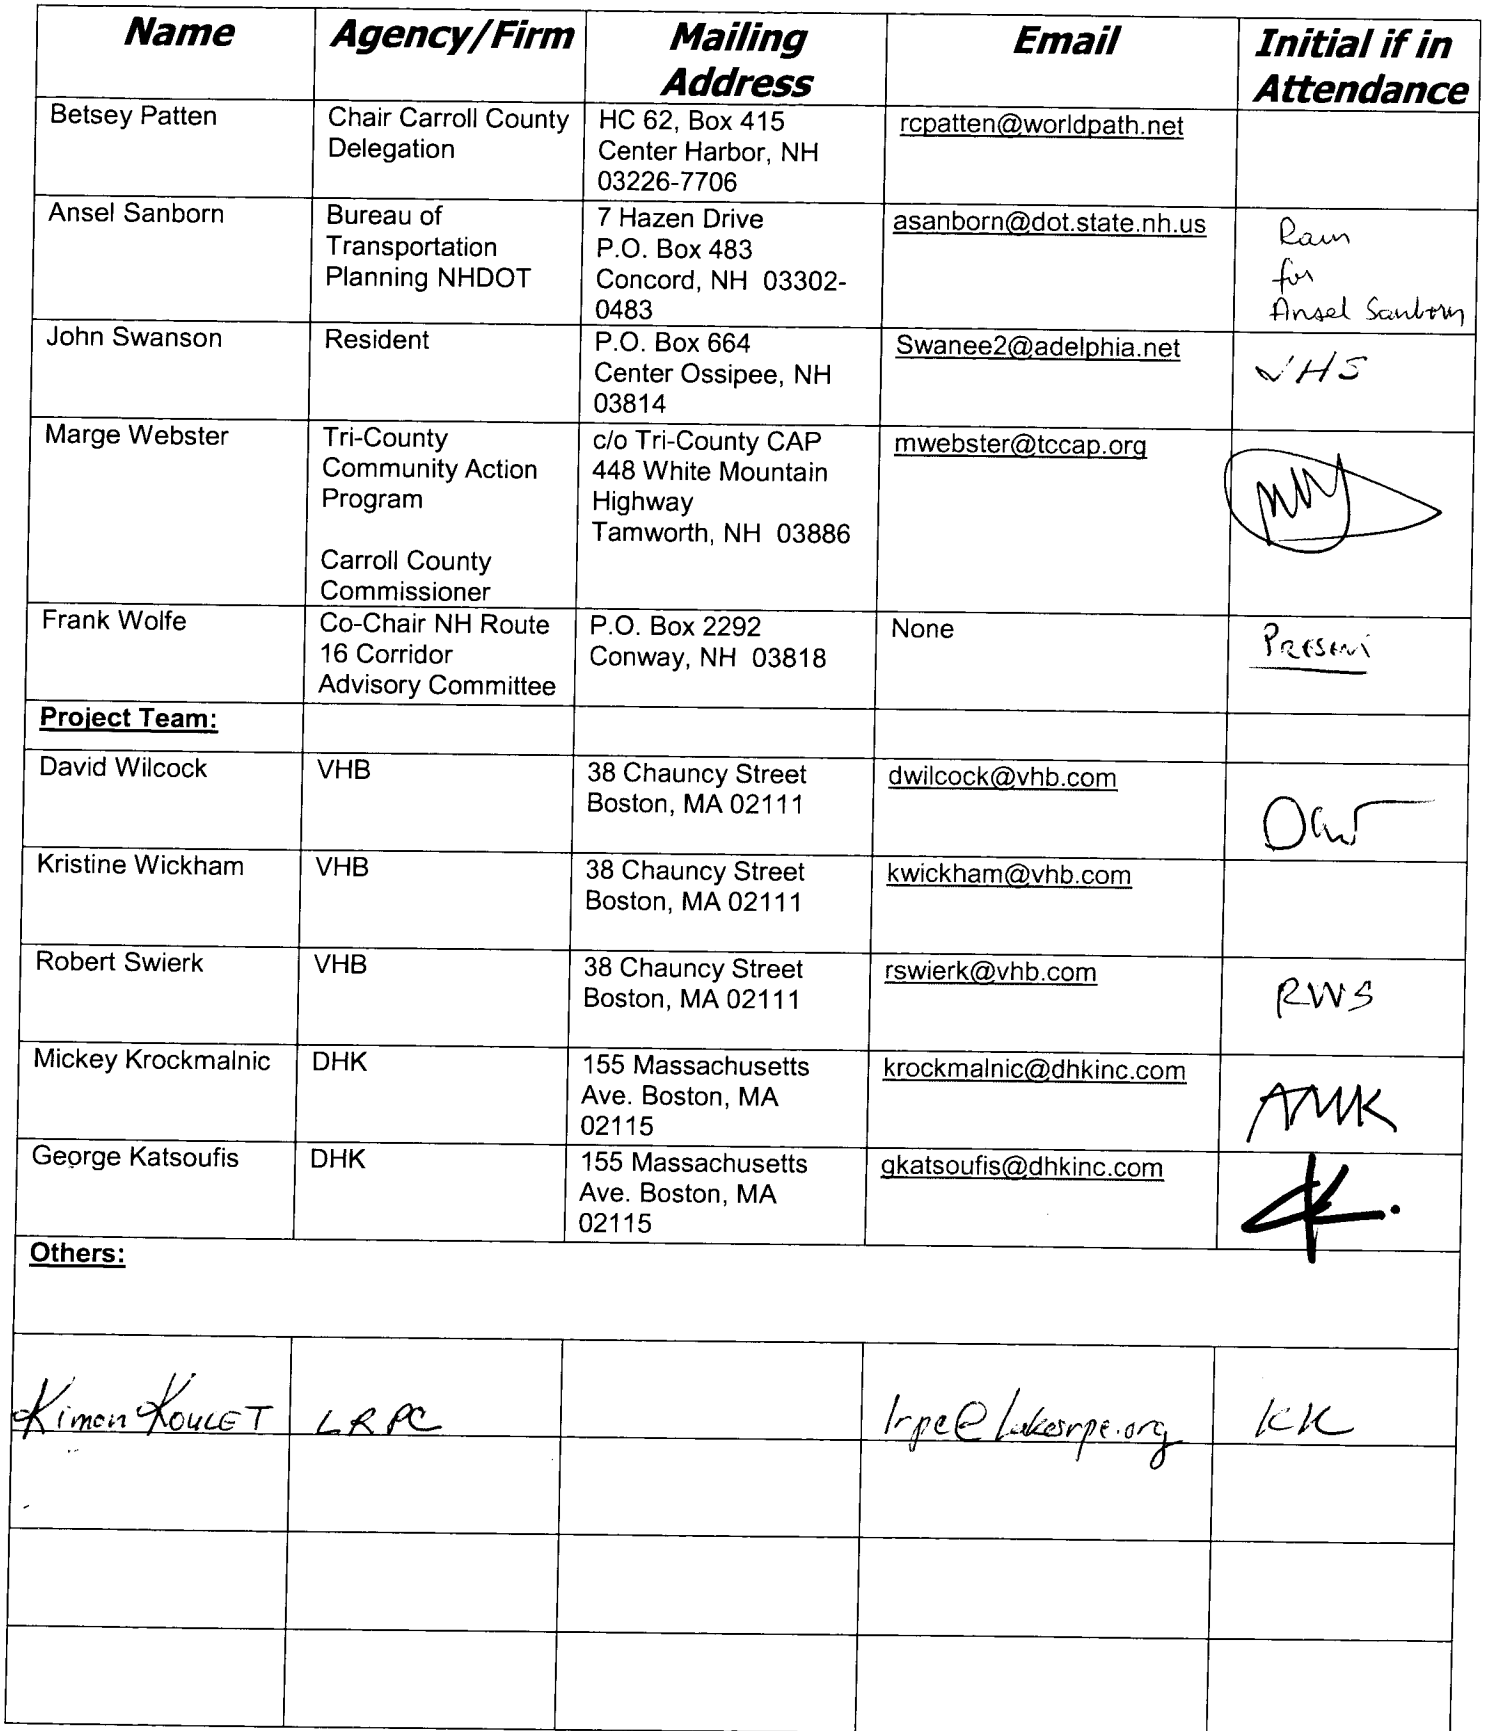 Name Agency/Firm Mailing Address Email Initial if in Attendance
Betsey Patten
Chair Carroll County
Delegation
HC 62, Box 415
Center Harbor, NH
03226-7706
rcpatten@worldpath.net
Ansel Sanborn
Bureau of
Transportation
Planning NHDOT
7 Hazen Drive
P.O. Box 483
Concord, NH 03302-
0483
asanborn@dot.state.nh.us
Ram
for
Ansel Sanborn
John Swanson
Resident
P.O. Box 664
Center Ossipee, NH
03814
Swanee2@adelphia.net
JHS
Marge Webster
Tri-County
Community Action
Program
Carroll County
Commissioner
c/o Tri-County CAP
448 White Mountain
Highway
Tamworth, NH 03886
mwebster@tccap.org
Frank Wolfe
Co-Chair NH Route
16 Corridor
Advisory Committee
P.O. Box 2292
Conway, NH 03818
None
PRESENT
Project Team:
David Wilcock
VHB
38 Chauncy Street
Boston, MA 02111
dwilcock@vhb.com
Kristine Wickham
VHB
38 Chauncy Street
Boston, MA 02111
kwickham@vhb.com
Robert Swierk
VHB
38 Chauncy Street
Boston, MA 02111
rswierk@vhb.com
RWS
Mickey Krockmalnic
DHK
155 Massachusetts
Ave. Boston, MA
02115
krockmalnic@dhkinc.com
AMK
George Katsoufis
DHK
155 Massachusetts
Ave. Boston, MA
02115
gkatsoufis@dhkinc.com
Others:
Kimon KOULET
LRPC
lrpc@lakesrpc.org
KK